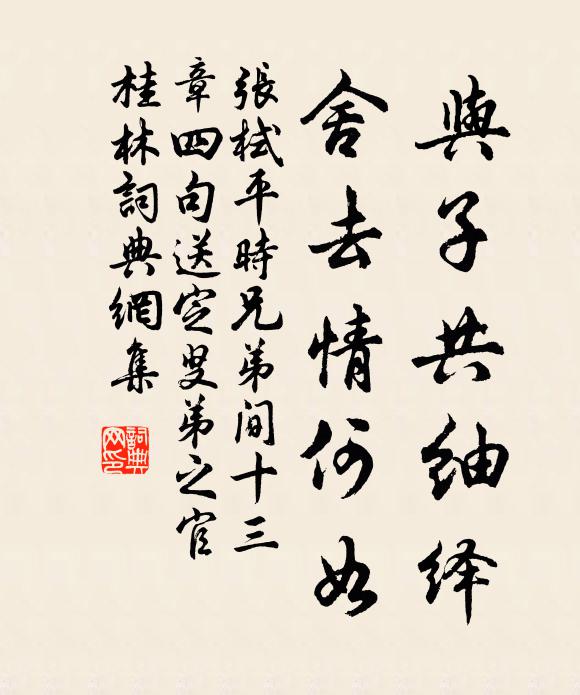 與子共紬绎
舍去情何如
張栻平時兄弟間十三
章四句送定叟弟之官
桂林詞典網集
詞典网印